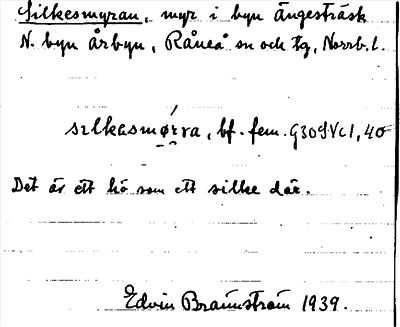 Silkesmyran, myr i byn Ängesträsk
N. byn Årbyn, Råneå sn och tg, Norrb. l.
sılkasmø̀rra, bf. fem.
Det är ett hö som ett silke där.
Edvin Brännström 1939.